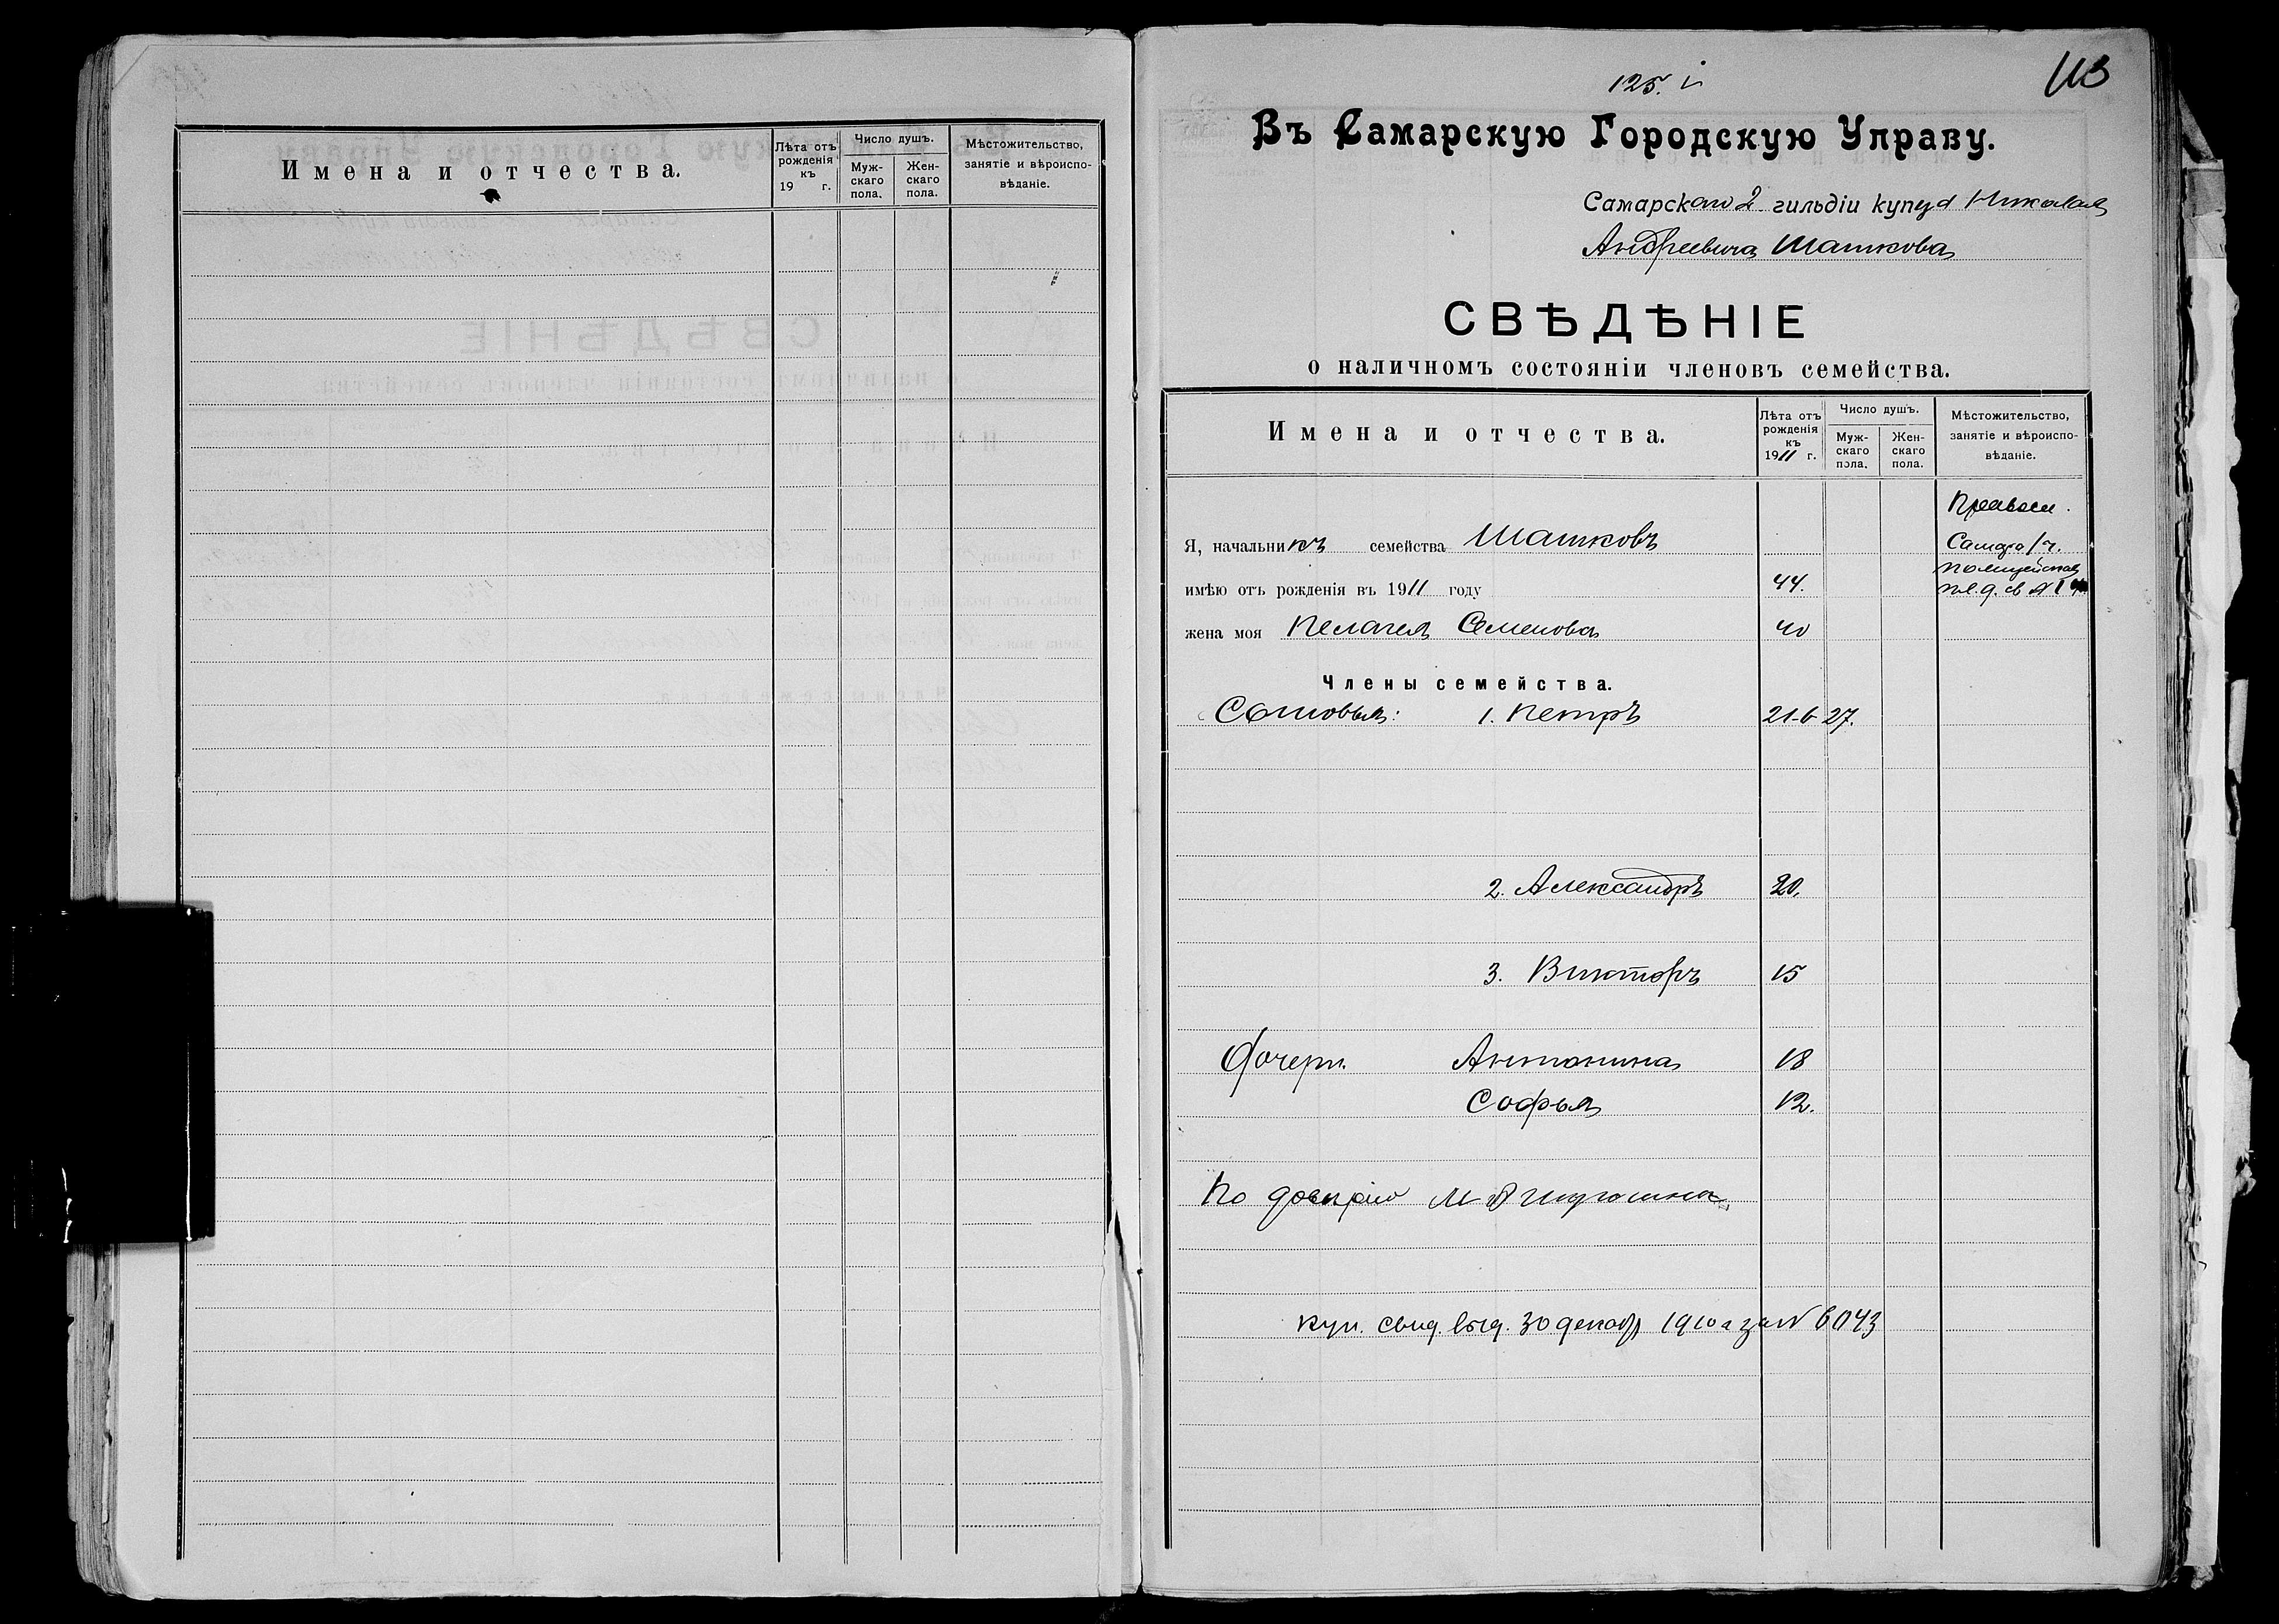 Имена и отчества.
Лѣта отъ рожденія къ 19 г.
Число душъ.
Муж- скаго пола.
Жен- скаго пола.
Мѣстожительство, занятіе и вѣроиспо- вѣданіе.
125.
113
Въ Самарскую Городскую Управу.
Самарскаго 2 гильдіи купца Николая
Андреевича Шашкова
СВѢДѢНІЕ
о наличномъ состояніи членовъ семейства.
Имена и отчества.
Лѣта отъ рожденія къ 1911 г.
Число душъ.
Муж- скаго пола.
Жен- скаго пола.
Мѣстожительство, занятіе и вѣроиспо- вѣданіе.
Правосл.
Я, начальникъ семейства Шашковъ
Самара
Полицейская
имѣю отъ рожденія въ 1911 году 44.
пл. д.
жена моя Пелагея Семенова 40
Члены семейства.
Сыновья: 1. Петръ 21-6 27.
2. Александръ 20.
3. Викторъ 15
Дочери. Антонина 18
Софья 12.
По довѣрію
куп. свид. выд. 30 декабр 1910 г за № 6043